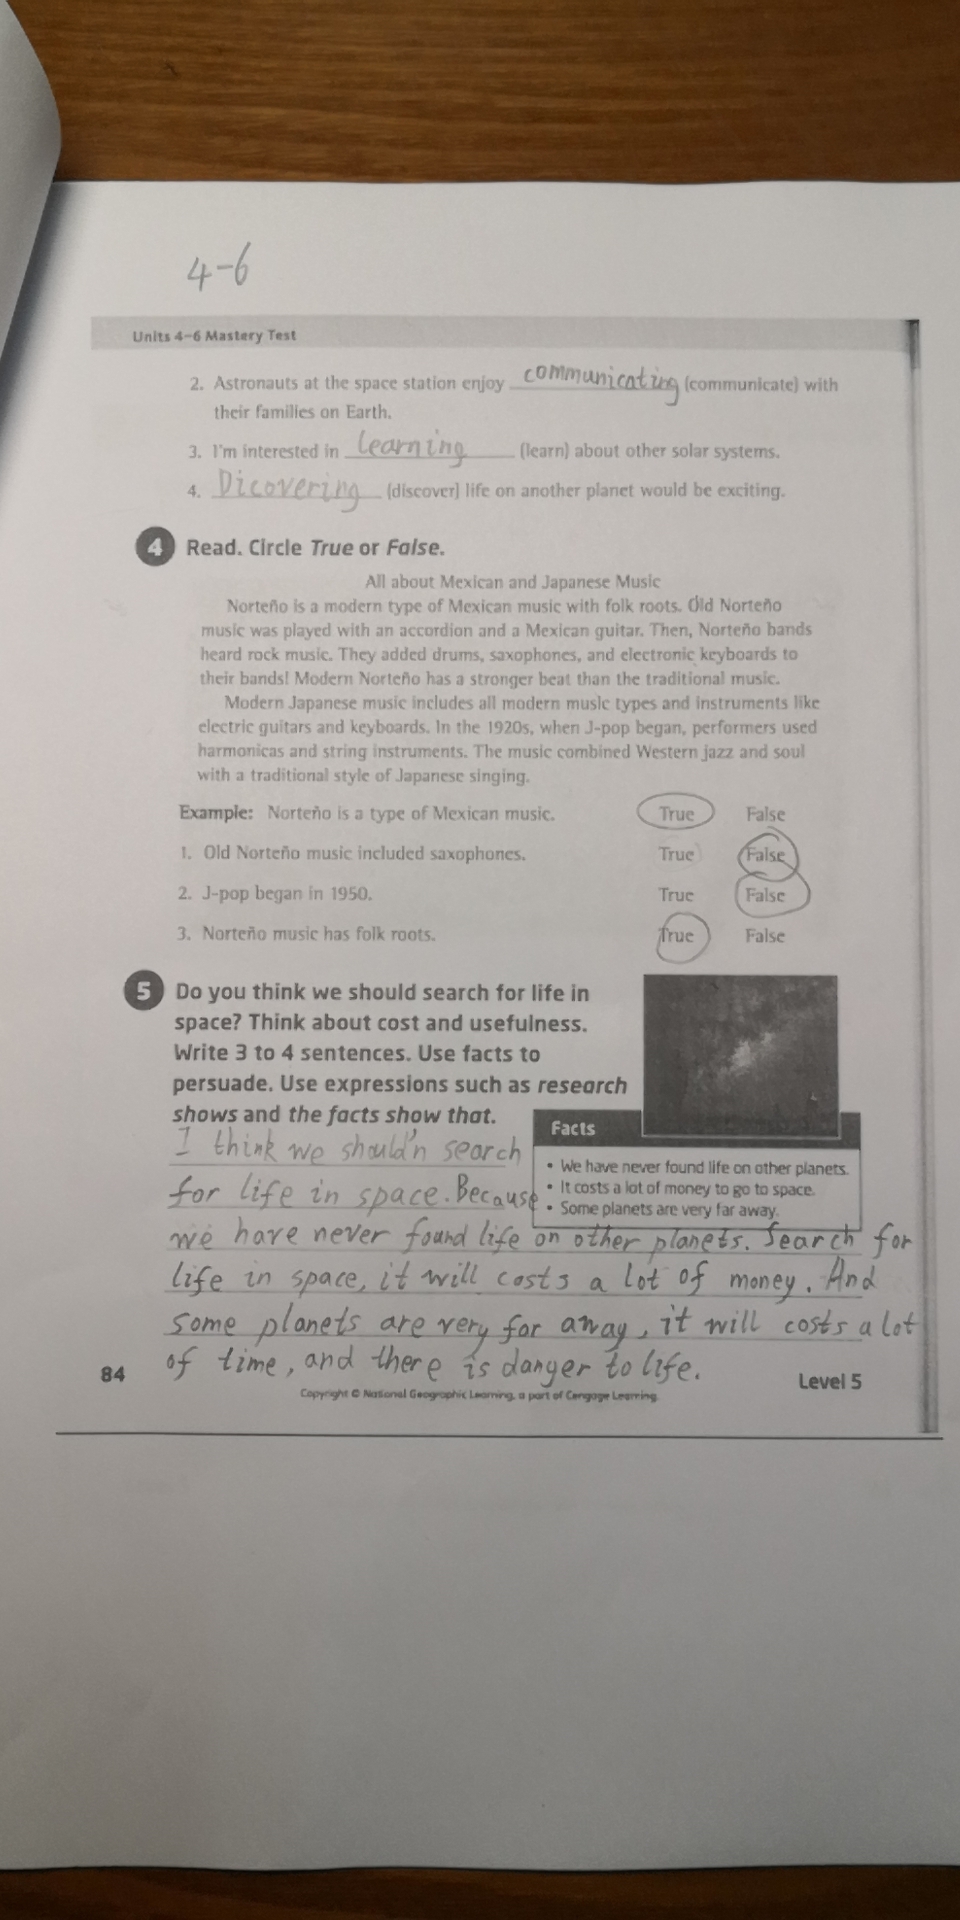 4-6
Units 4-6 Mastery Test
2. Astronauts at the space station enjoy communicating (communicate) with
their families on Earth.
3. I'm interested in learning (learn) about other solar systems.
4. Dicovering (discover) life on another planet would be exciting.
4 Read. Circle True or False.
All about Mexican and Japanese Music
Norteño is a modern type of Mexican music with folk roots. Old Norteño
music was played with an accordion and a Mexican guitar. Then, Norteño bands
heard rock music. They added drums, saxophones, and electronic keyboards to
their bands! Modern Norteño has a stronger beat than the traditional music.
Modern Japanese music includes all modern music types and instruments like
electric guitars and keyboards. In the 1920s, when J-pop began, performers used
harmonicas and string instruments. The music combined Western jazz and soul
with a traditional style of Japanese singing.
Example: Norteño is a type of Mexican music. True False
1. Old Norteño music included saxophones. True False
2. J-pop began in 1950. True False
3. Norteño music has folk roots. True False
5 Do you think we should search for life in
space? Think about cost and usefulness.
Write 3 to 4 sentences. Use facts to
persuade. Use expressions such as research
shows and the facts show that.
Facts
• We have never found life on other planets.
• It costs a lot of money to go to space.
• Some planets are very far away.
I think we should'n search
for life in space. Because
we have never found life on other planets. Search for
life in space, it will costs a lot of money. And
some planets are very for away, it will costs a lot
of time, and there is danger to life.
84
Level 5
Copyright © National Geographic Learning, a part of Cengage Learning.